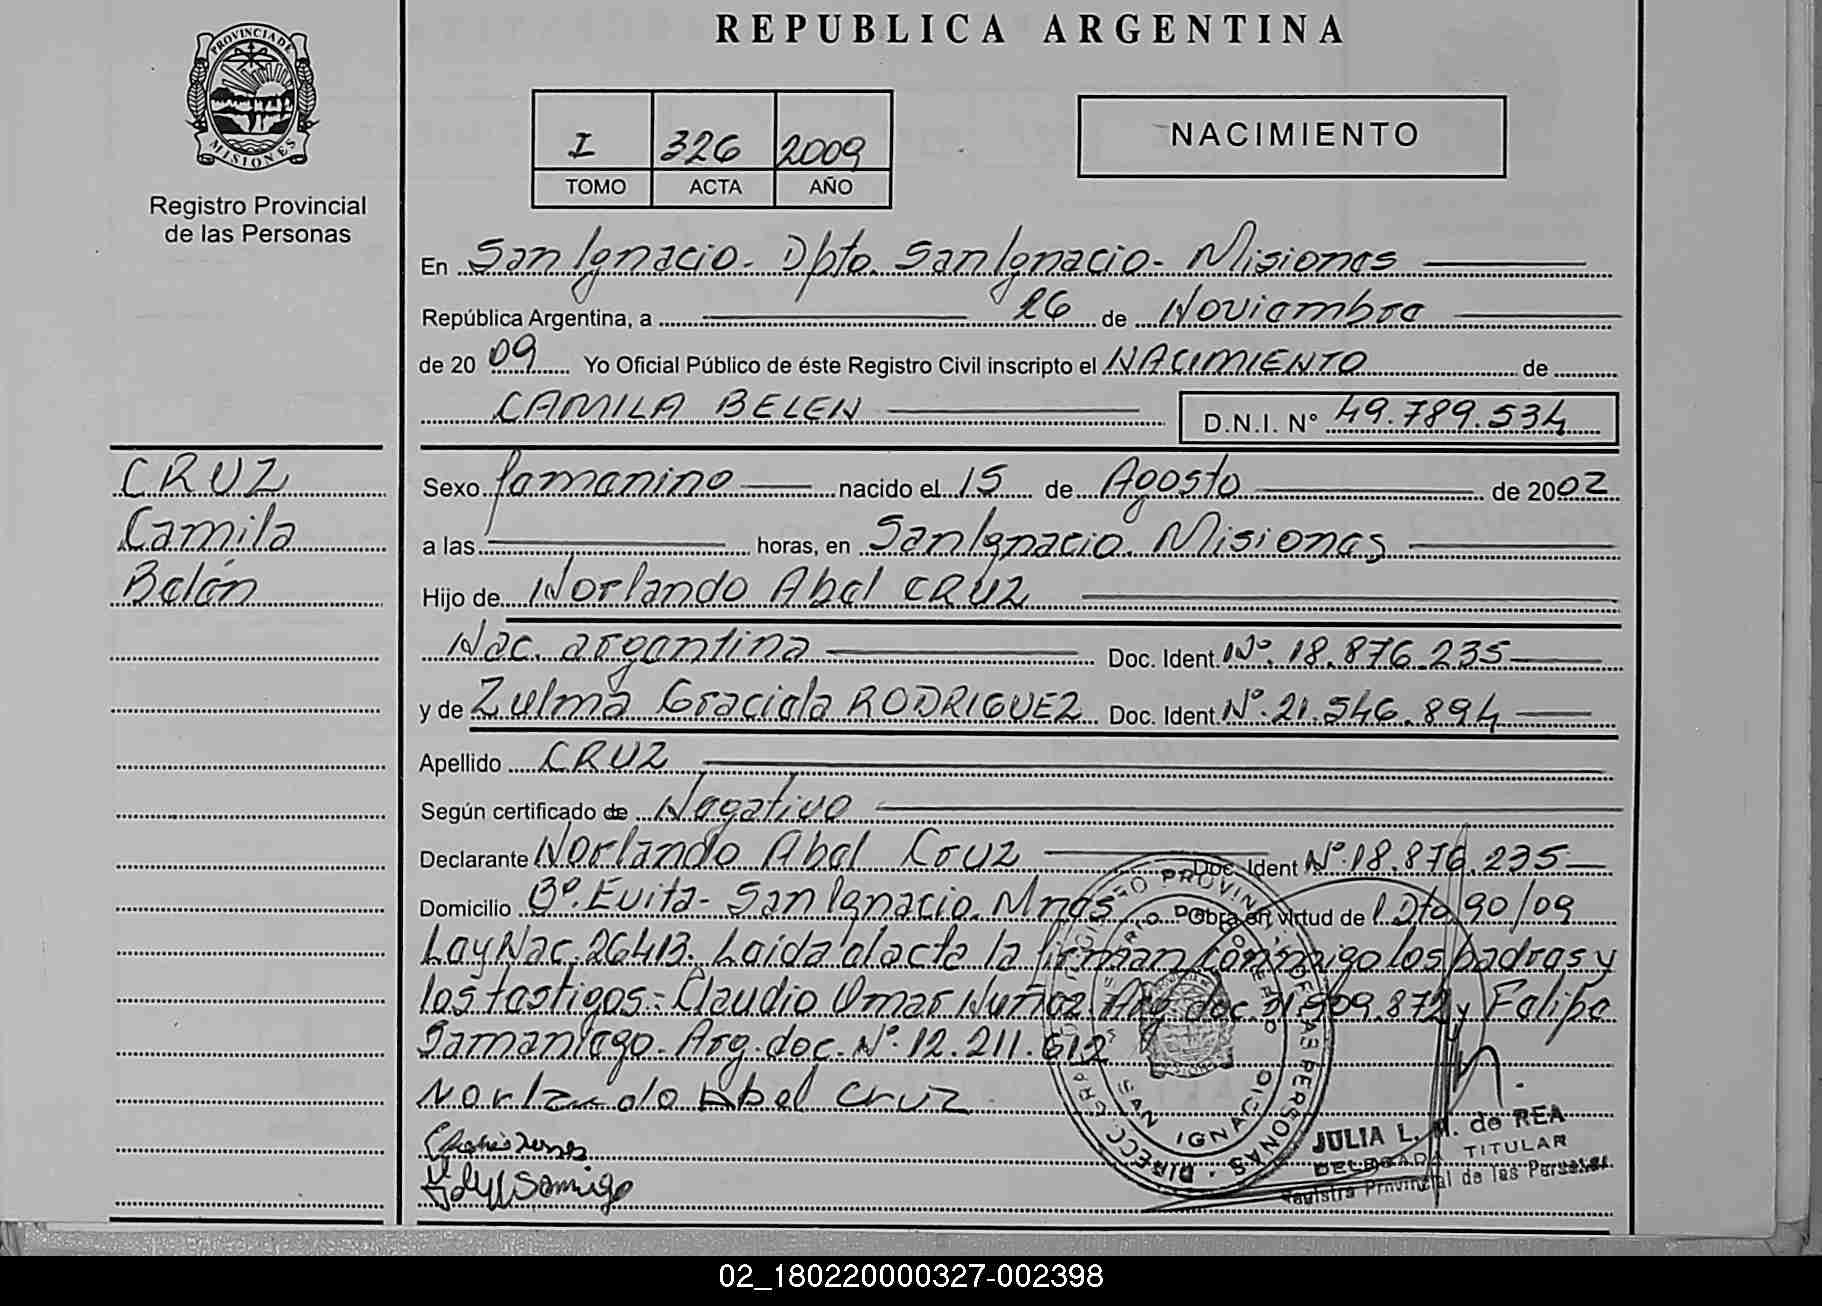 REPUBLICA ARGENTINA
PROVINCIA DE MISIONES
Registro Provincial
de las Personas
I 326 2009
TOMO ACTA AÑO
NACIMIENTO
En San Ignacio. Dpto. San Ignacio. Misiones
República Argentina, a 26 de Noviembre
de 2009 Yo Oficial Público de éste Registro Civil inscripto el NACIMIENTO de
CAMILA BELEN D.N.I. N° 49.789.534
CRUZ
Camila
Belén
Sexo femenino nacido el 15 de Agosto de 2002
a las horas, en San Ignacio. Misiones
Hijo de Norlando Abel CRUZ
Nac. argentina Doc. Ident. N°. 18.876.235
y de Zulma Graciela RODRIGUEZ Doc. Ident. N°. 21.546.894
Apellido CRUZ
Según certificado de Negativo
Declarante Norlando Abel Cruz Doc. Ident N°. 18.876.235
Domicilio B°. Evita - San Ignacio. Mnes Obra en virtud de Dto 90/09
Ley Nac. 26413. Leida el acta la firman conmigo los padres y
los testigos: Claudio Omar Nuñez. Arg. doc. 21.509.872 y Felipe
Samaniego. Arg. doc. N°. 12.211.612
Norlando Abel Cruz
JULIA L. M. de REA
DELEGADA TITULAR
Registro Provincial de las Personas
SAN IGNACIO
02_180220000327-002398